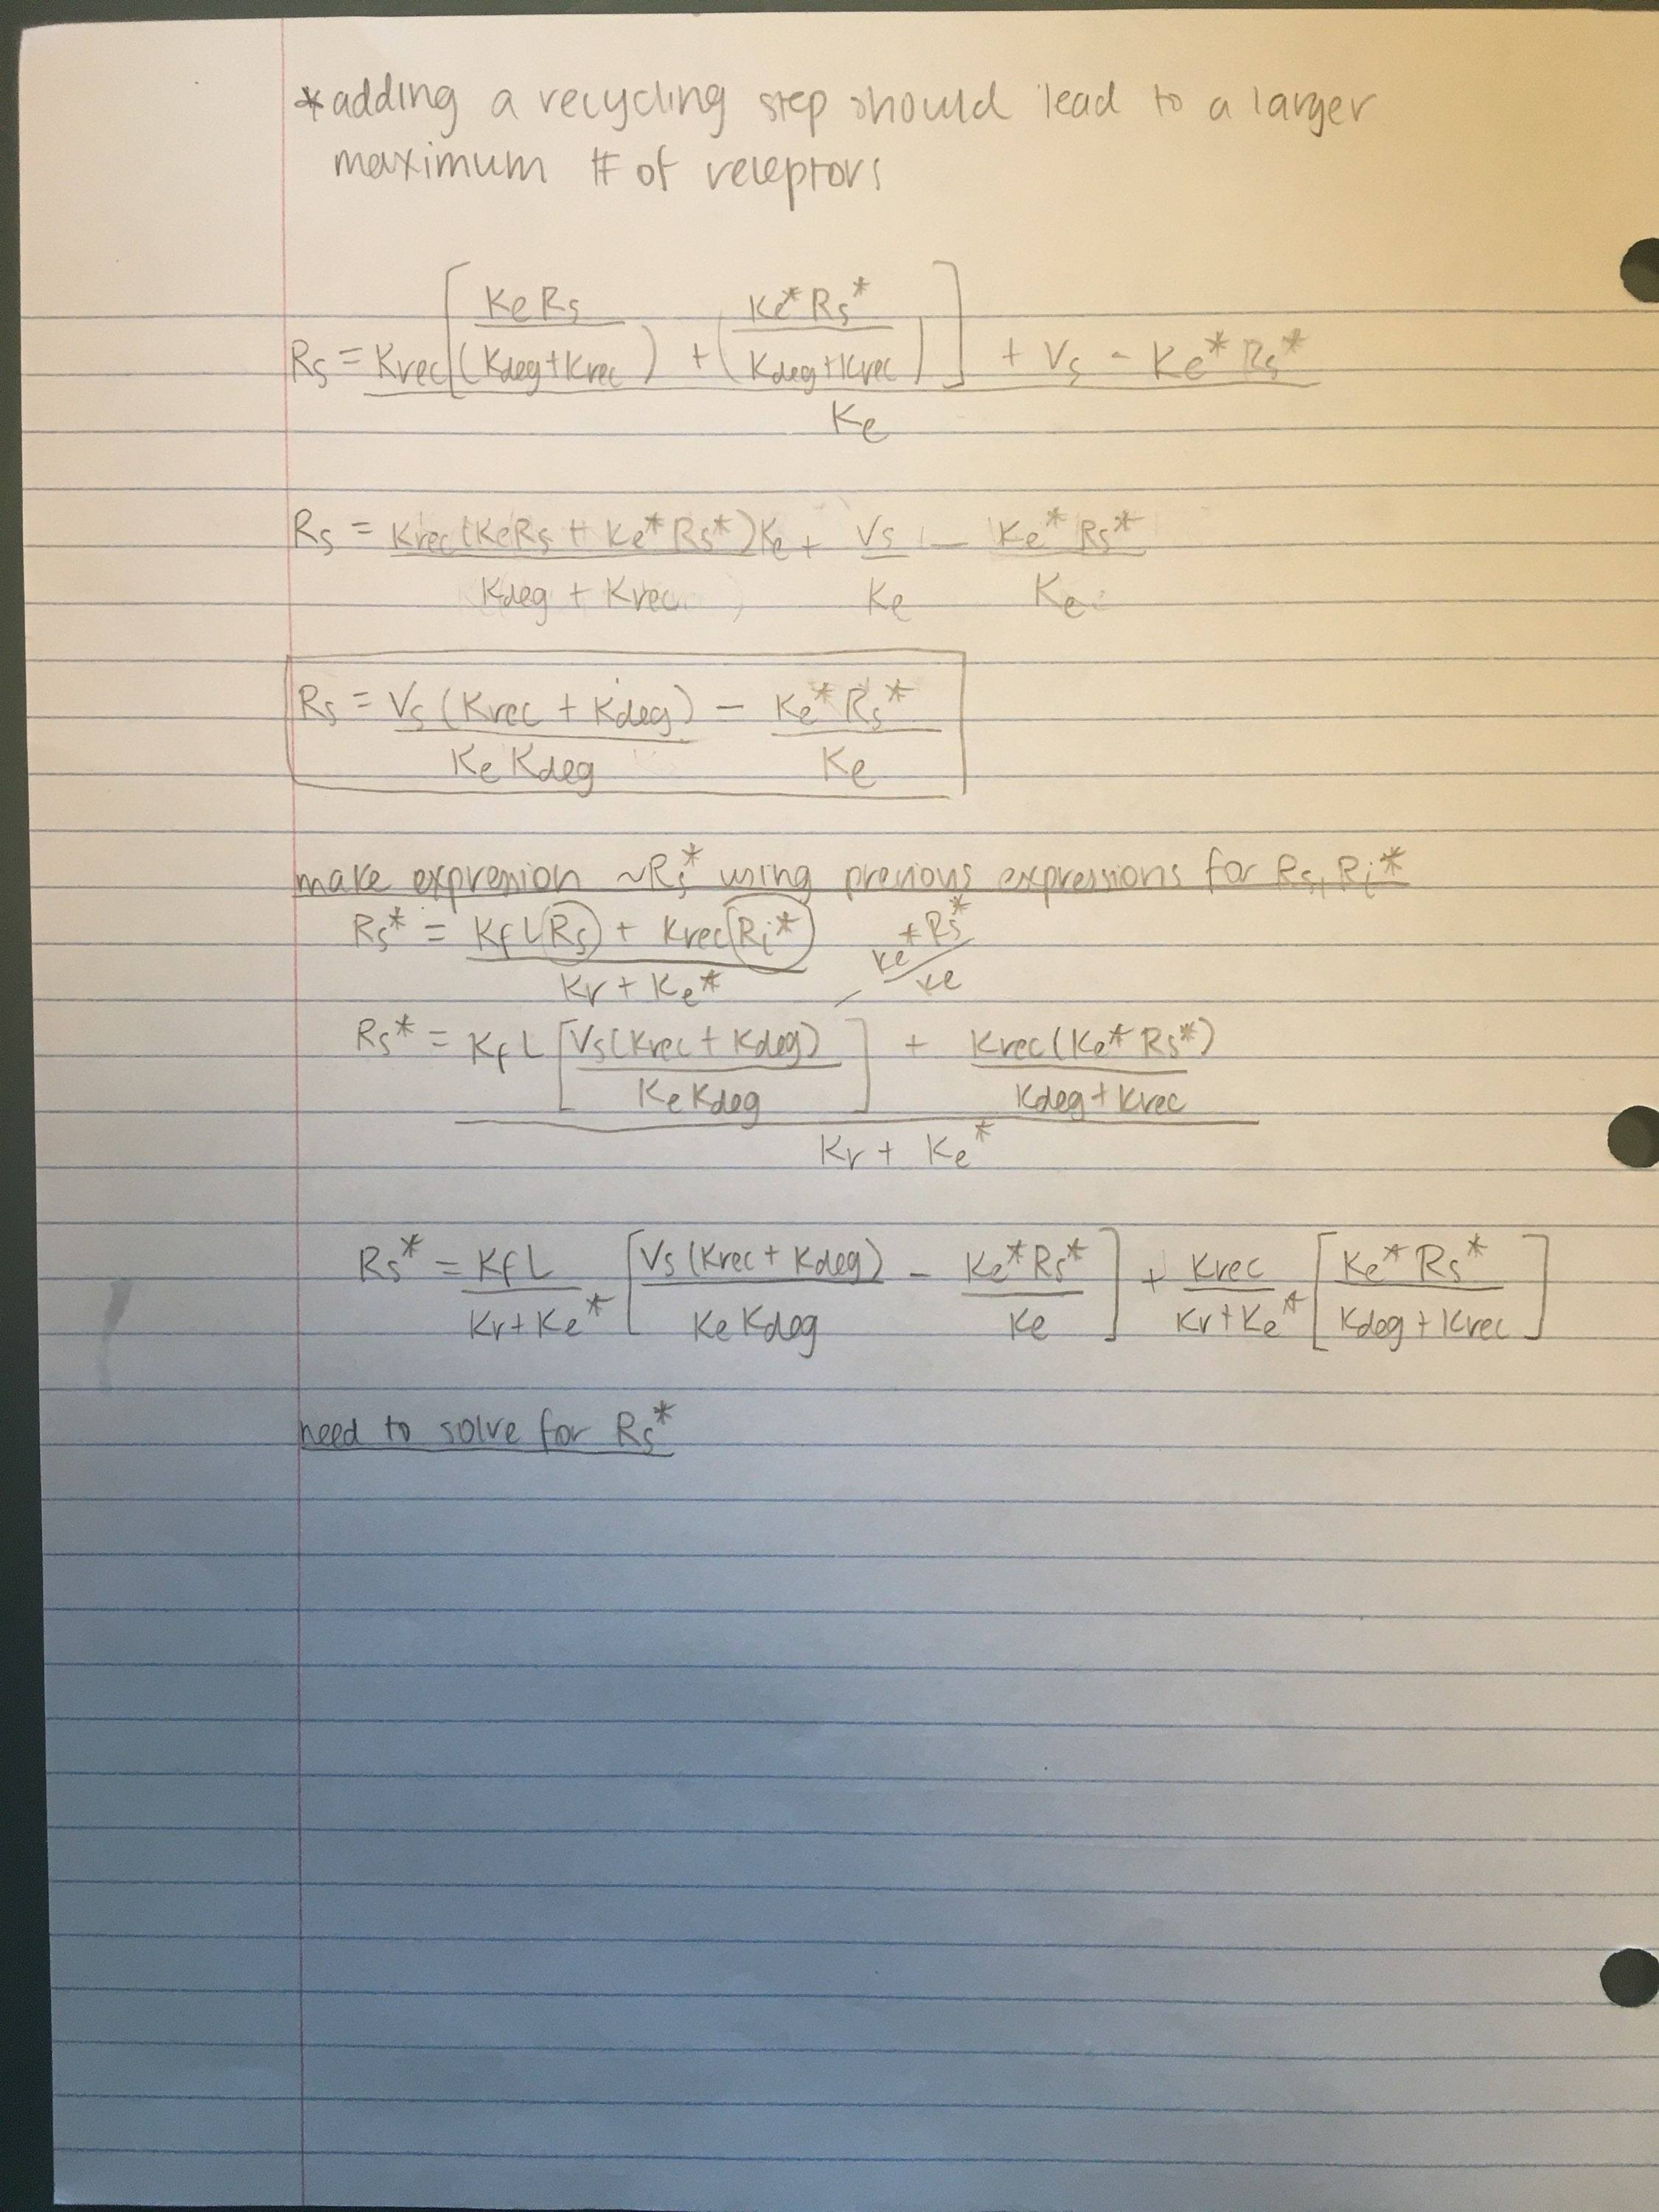 *adding a recycling step should lead to a larger
maximum # of receptors
Rs = Krec [ KeRs / (Kdeg+Krec) + ( Ke* Rs* / Kdeg+Krec ) ] + Vs - Ke* Rs* / Ke
Rs = Krec(KeRs + Ke* Rs*)Ke / Kdeg + Krec + Vs / Ke - Ke* Rs* / Ke
Rs = Vs (Krec + Kdeg) / Ke Kdeg - Ke* Rs* / Ke
make expression ~Rs* using previous expressions for Rs, Ri*
Rs* = Kf L(Rs) + Krec(Ri*) / Kr + Ke*
Rs* = Kf L [ Vs(Krec + Kdeg) / Ke Kdeg - Ke* Rs* / Ke ] + Krec(Ke* Rs*) / Kdeg + Krec / Kr + Ke*
Rs* = Kf L / Kr + Ke* [ Vs (Krec + Kdeg) / Ke Kdeg - Ke* Rs* / Ke ] + Krec / Kr + Ke* [ Ke* Rs* / Kdeg + Krec ]
need to solve for Rs*